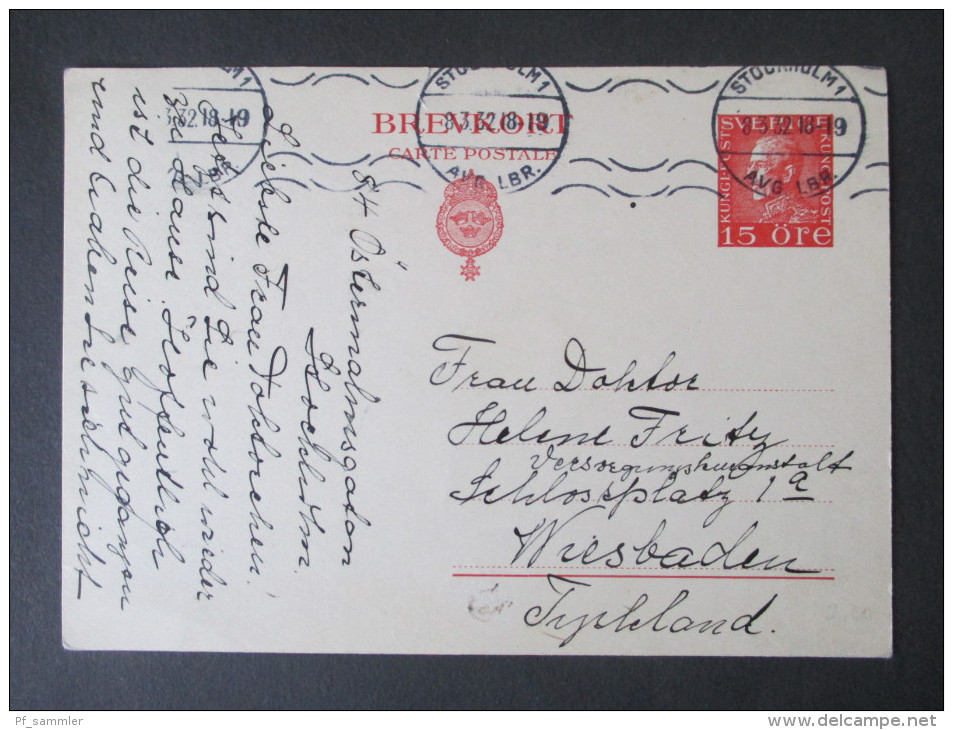 STOCKHOLM 1
8.3.32.18-19
AVG LBR.
STOCKHOLM 1
8.3.32.18-19
AVG LBR.
BREVKORT
CARTE POSTALE
SVERIGE
KUNGL. POST
KUNGL. POST
15 öre
Frau Doktor
Helene Fritz
Versorgungskuranstalt
Schlossplatz 1a
Wiesbaden
Tyskland.
84 Östermalmsgatan
Stockholm.
Liebste Frau Doktorchen!
Jetzt sind Sie wohl wieder
zu Hause. Hoffentlich
ist die Reise gut gegangen
und haben Sie sich nicht
Pf_sammler
www.delcampe.net